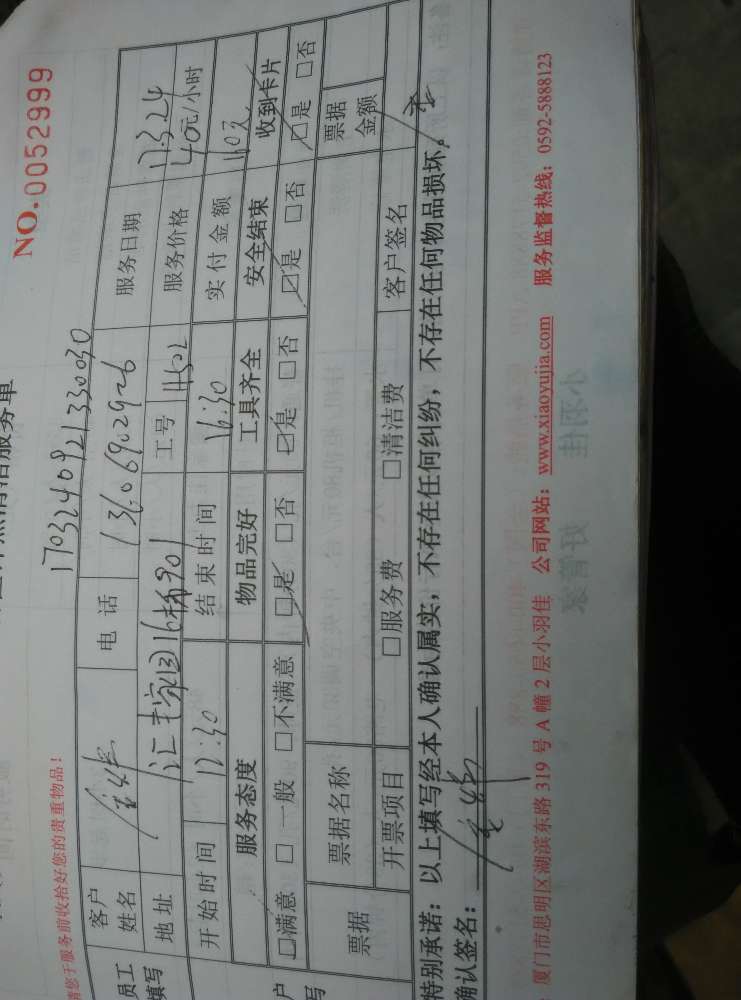 清洁服务单
NO.0052999
170324092133030
请您于服务前收拾好您的贵重物品！
员工填写
客户姓名
电话 13606902926
服务日期 17.3.24
地址 汇丰家园16栋901
工号 H502
服务价格 40元/小时
开始时间 12:30
结束时间 16:30
实付金额
服务态度 物品完好 工具齐全 安全结束 收到卡片
☑满意 □一般 □不满意 ☑是 □否 ☑是 □否 ☑是 □否 ☑是 □否
票据 票据名称 票据金额
开票项目 □服务费 □清洁费 客户签名
特别承诺：以上填写经本人确认属实，不存在任何纠纷，不存在任何物品损坏。
确认签名：
厦门市思明区湖滨东路 319 号 A 幢 2 层小羽佳 公司网站：www.xiaoyujia.com 服务监督热线：0592-5888123